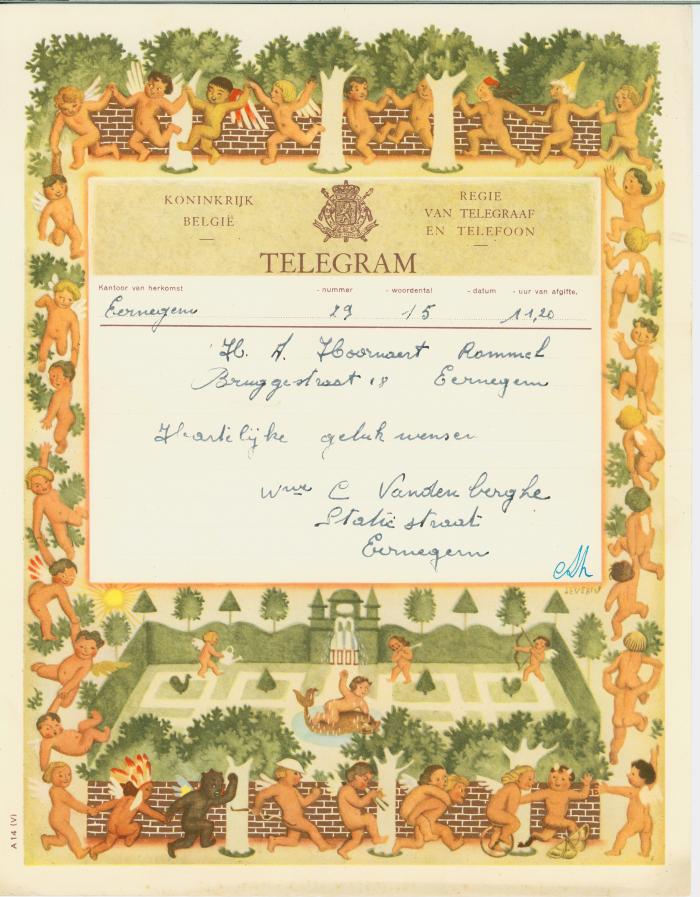 KONINKRIJK
BELGIË
REGIE
VAN TELEGRAAF
EN TELEFOON
TELEGRAM
Kantoor van herkomst - nummer - woordental - datum - uur van afgifte.
Eernegem 29 15 11,20
H. A. Hoornaert Rommel
Bruggestraat 18 Eernegem
Hartelijke gelukwensen
Wwe C Vandenberghe
Statiestraat
Eernegem
SEVERIN
A 14 (V)